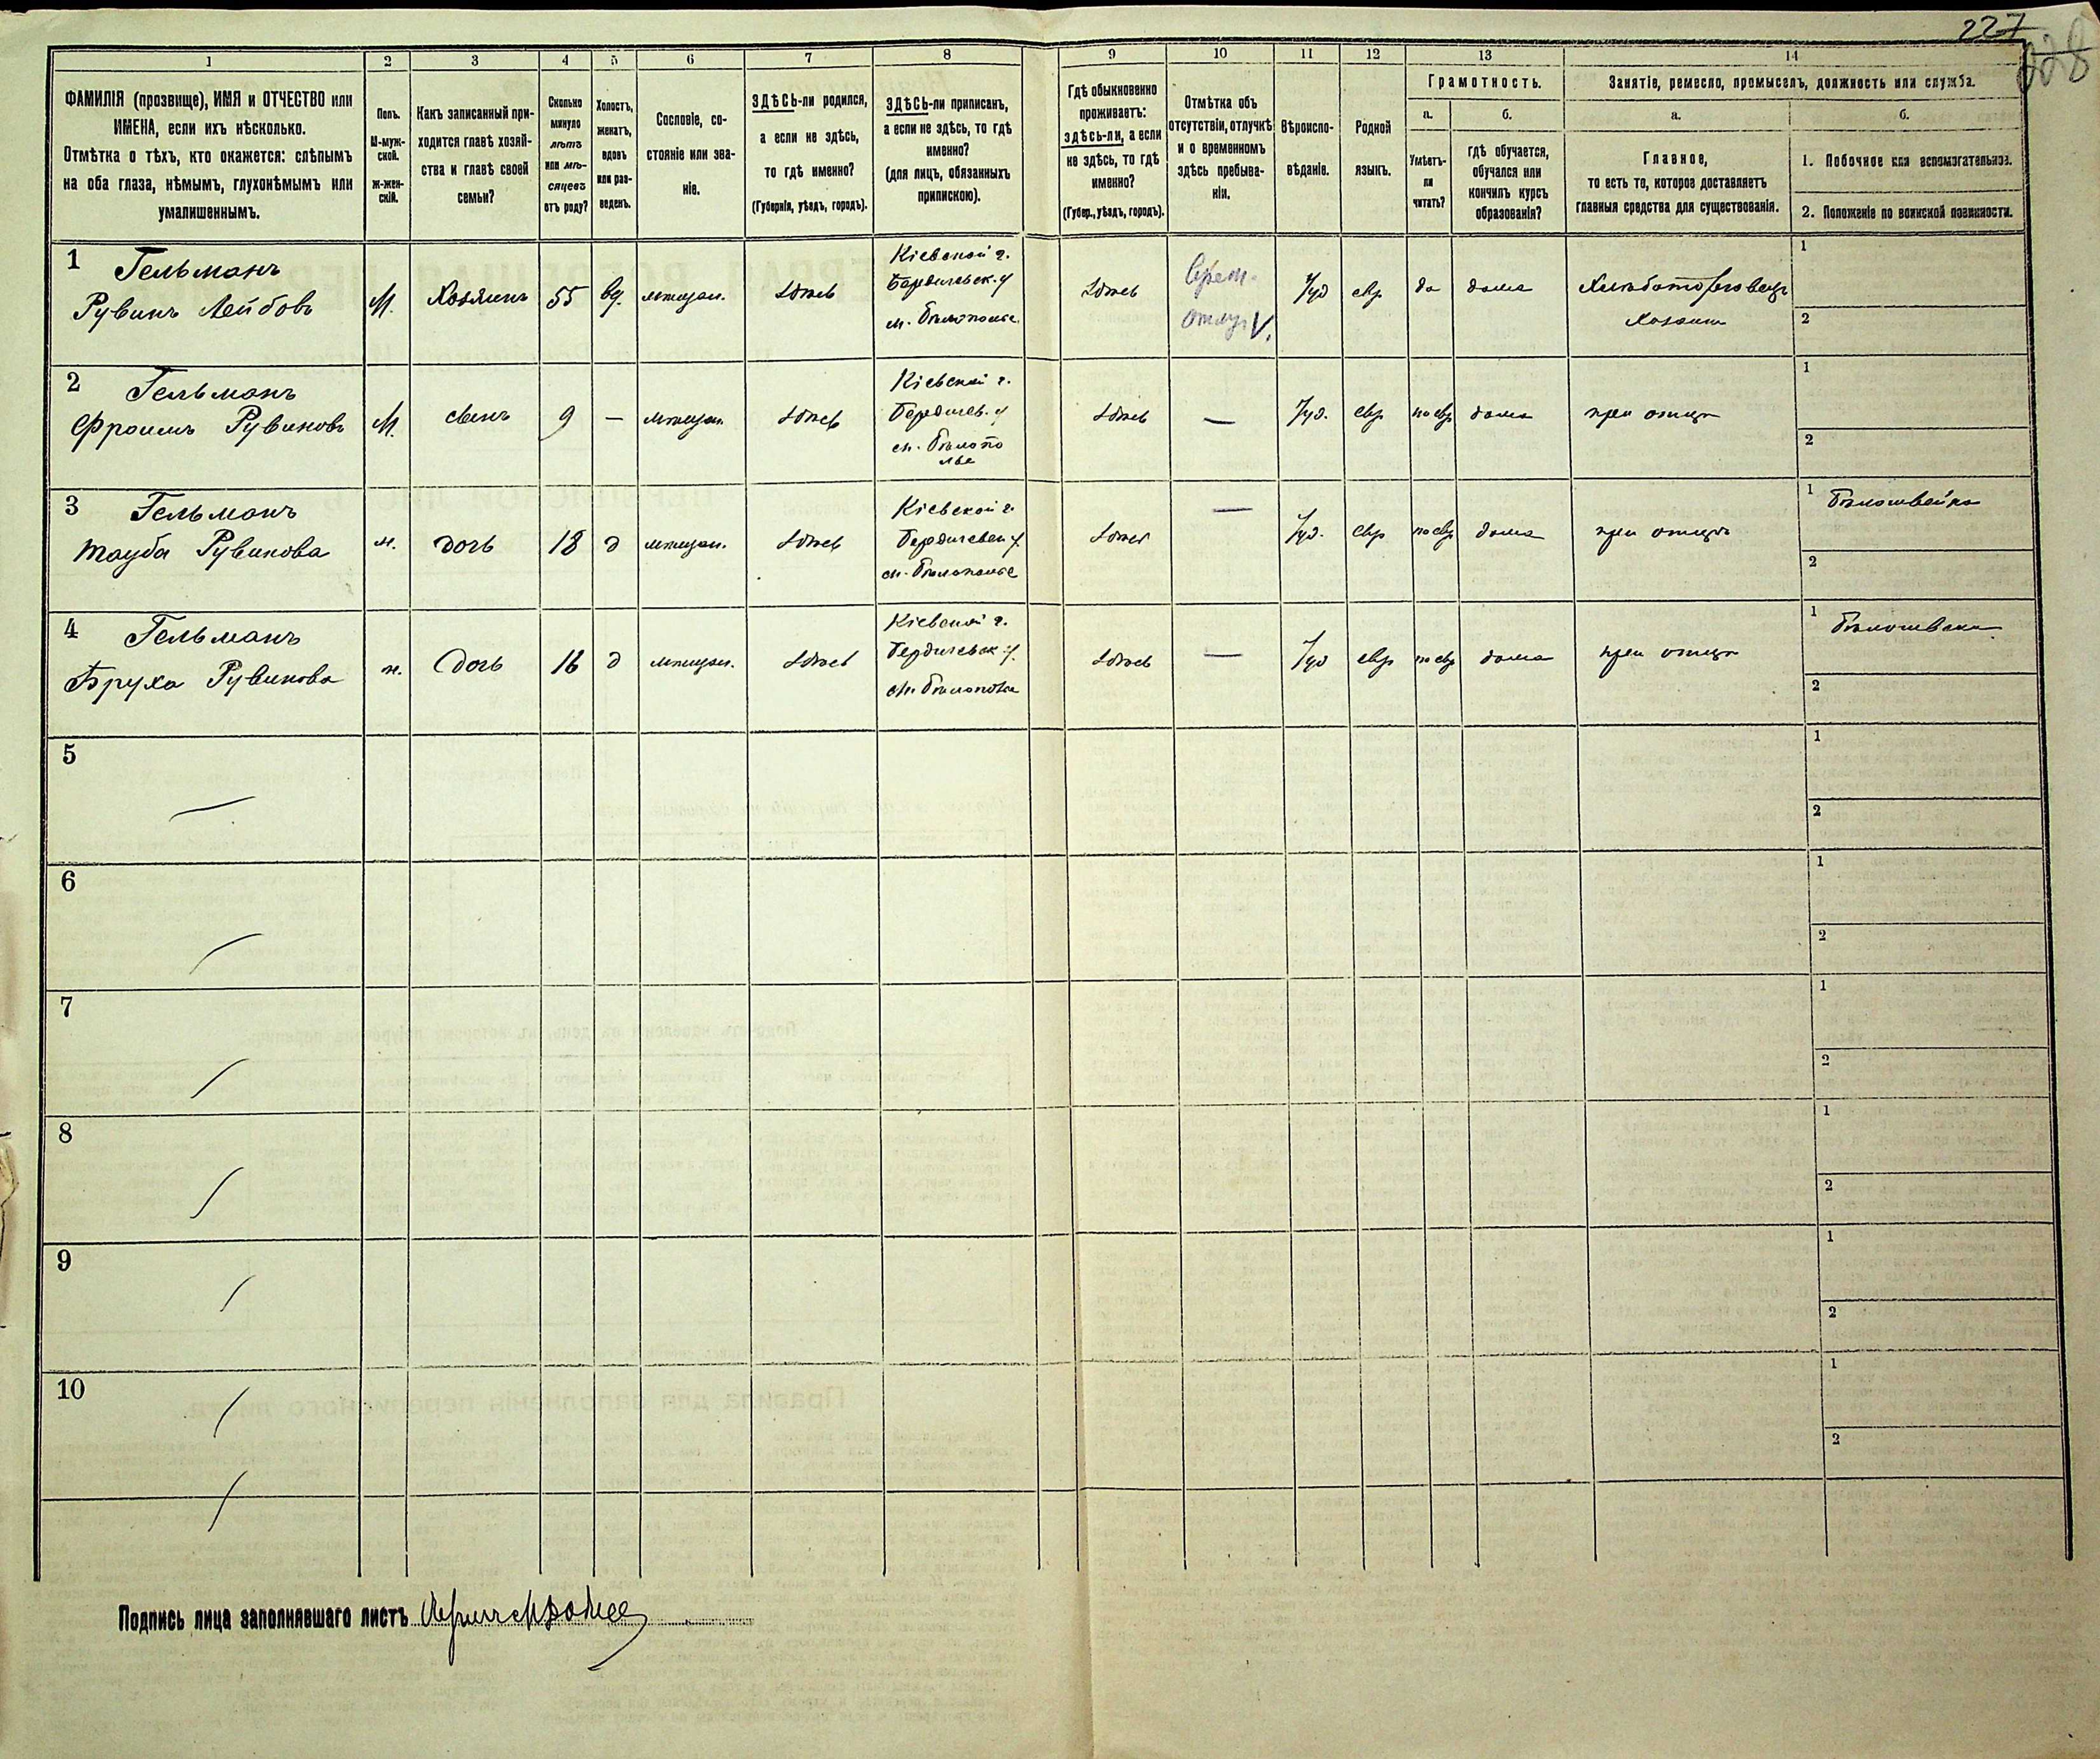 227
228
1
2
3
4
5
6
7
8
9
10
11
12
13
14
ФАМИЛІЯ (прозвище), ИМЯ и ОТЧЕСТВО или
ИМЕНА, если ихъ нѣсколько.
Отмѣтка о тѣхъ, кто окажется: слѣпымъ
на оба глаза, нѣмымъ, глухонѣмымъ или
умалишеннымъ.
Полъ.
М-муж-
ской.
Ж-жен-
скій.
Какъ записанный при-
ходится главѣ хозяй-
ства и главѣ своей
семьи?
Сколько
минуло
лѣтъ
или мѣ-
сяцевъ
отъ роду?
Холостъ,
женатъ,
вдовъ
или раз-
веденъ.
Сословіе, со-
стояніе или зва-
ніе.
ЗДѢСЬ-ли родился,
а если не здѣсь,
то гдѣ именно?
(Губернія, уѣздъ, городъ).
ЗДѢСЬ-ли приписанъ,
а если не здѣсь, то гдѣ
именно?
(для лицъ, обязанныхъ
припискою).
Гдѣ обыкновенно
проживаетъ:
здѣсь-ли, а если
не здѣсь, то гдѣ
именно?
(Губер., уѣздъ, городъ).
Отмѣтка объ
отсутствіи, отлучкѣ
и о временномъ
здѣсь пребыва-
ніи.
Вѣроиспо-
вѣданіе.
Родной
языкъ.
Грамотность.
а.
Умѣетъ-
ли
читать?
б.
гдѣ обучается,
обучался или
кончилъ курсъ
образованія?
Занятіе, ремесло, промыселъ, должность или служба.
а.
Главное,
то есть то, которое доставляетъ
главныя средства для существованія.
б.
1. Побочное или вспомогательное.
2. Положеніе по воинской повинности.
1
Гельманъ
Рувинъ Лейбовъ
М.
Хозяинъ
55
вд.
мѣщан.
здѣсь
Кіевской г.
Бердичевск. у
м. Бѣлополье
здѣсь
Врем.
отлуч V.
Іуд
евр
да
дома
Хлѣботорговецъ
Хозяин
1
2
2
Гельманъ
Фроимъ Рувиновъ
М.
сынъ
9
—
мѣщан.
здѣсь
Кіевской г.
Бердичев. у
м. Бѣлопо
лье
здѣсь
—
Іуд.
евр
по евр
дома
при отцѣ
1
2
3
Гельманъ
Тауба Рувинова
ж.
дочь
18
д
мѣщан.
здѣсь
Кіевской г.
Бердичевск у.
м. Бѣлополье
здѣсь
—
Іуд.
евр
по евр
дома
при отцѣ
1 Бѣлошвейка
2
4
Гельманъ
Бруха Рувинова
ж.
Дочь
16
д
мѣщан.
здѣсь
Кіевской г.
Бердичевск у.
м. Бѣлополье
здѣсь
—
Іуд
евр
по евр
дома
при отцѣ
1 Бѣлошвейка
2
5
1
2
6
1
2
7
1
2
8
1
2
9
1
2
10
1
2
Подпись лица заполнявшаго листъ